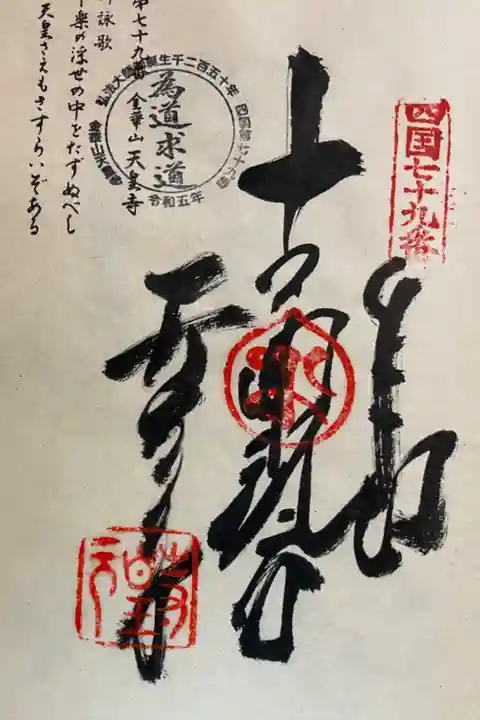 四国七十九番
奉納
十一面観音
天皇寺
弘法大師御誕生千二百五十年
四国第七十九番
為道求道
金華山天皇寺
令和五年
第七十九番 金華山天皇寺
御詠歌
十楽の浮世の中をたずぬべし
天皇さえもさすらいぞある